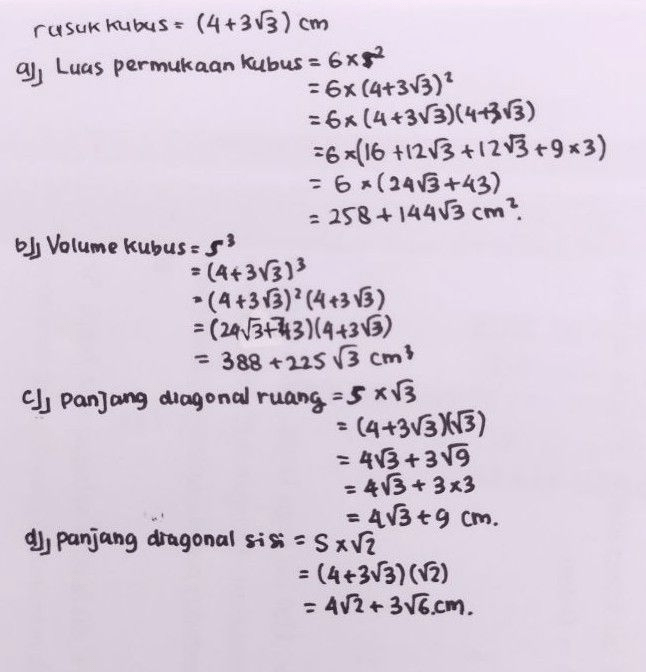 rusuk kubus = (4+3√3) cm
a)) Luas permukaan kubus = 6×s²
= 6×(4+3√3)²
= 6×(4+3√3)(4+3√3)
=6×(16+12√3+12√3+9×3)
= 6×(24√3+43)
= 258+144√3 cm².
b)) Volume kubus = s³
= (4+3√3)³
= (4+3√3)²(4+3√3)
= (24√3+43)(4+3√3)
= 388+225√3 cm³
c)) panjang diagonal ruang = s×√3
= (4+3√3)(√3)
= 4√3+3√9
= 4√3+3×3
= 4√3+9 cm.
d)) panjang diagonal sisi = s×√2
= (4+3√3)(√2)
= 4√2+3√6.cm.